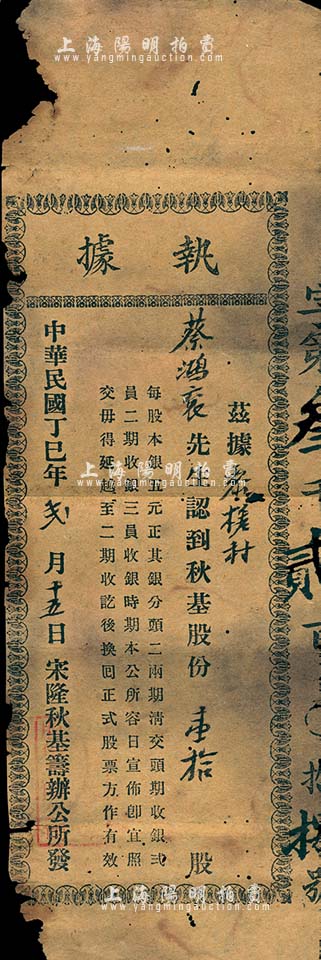 上海陽明拍賣
www.yangmingauction.com
執據
茲據 槎村
蔡鴻 先生認到秋基股份 拾 股
每股本銀五元正其銀分頭二兩期清交頭期收銀弍
員二期收銀三員收銀時期本公所容日宣佈卽宜照
交毋得延遲至二期收訖後換囘正式股票方作有效
中華民國丁巳年 弍 月 十五 日 宋隆秋基籌辦公所發
第叁千貳百 拾 號
上海陽明拍賣
www.yangmingauction.com
上海陽明拍賣
www.yangmingauction.com